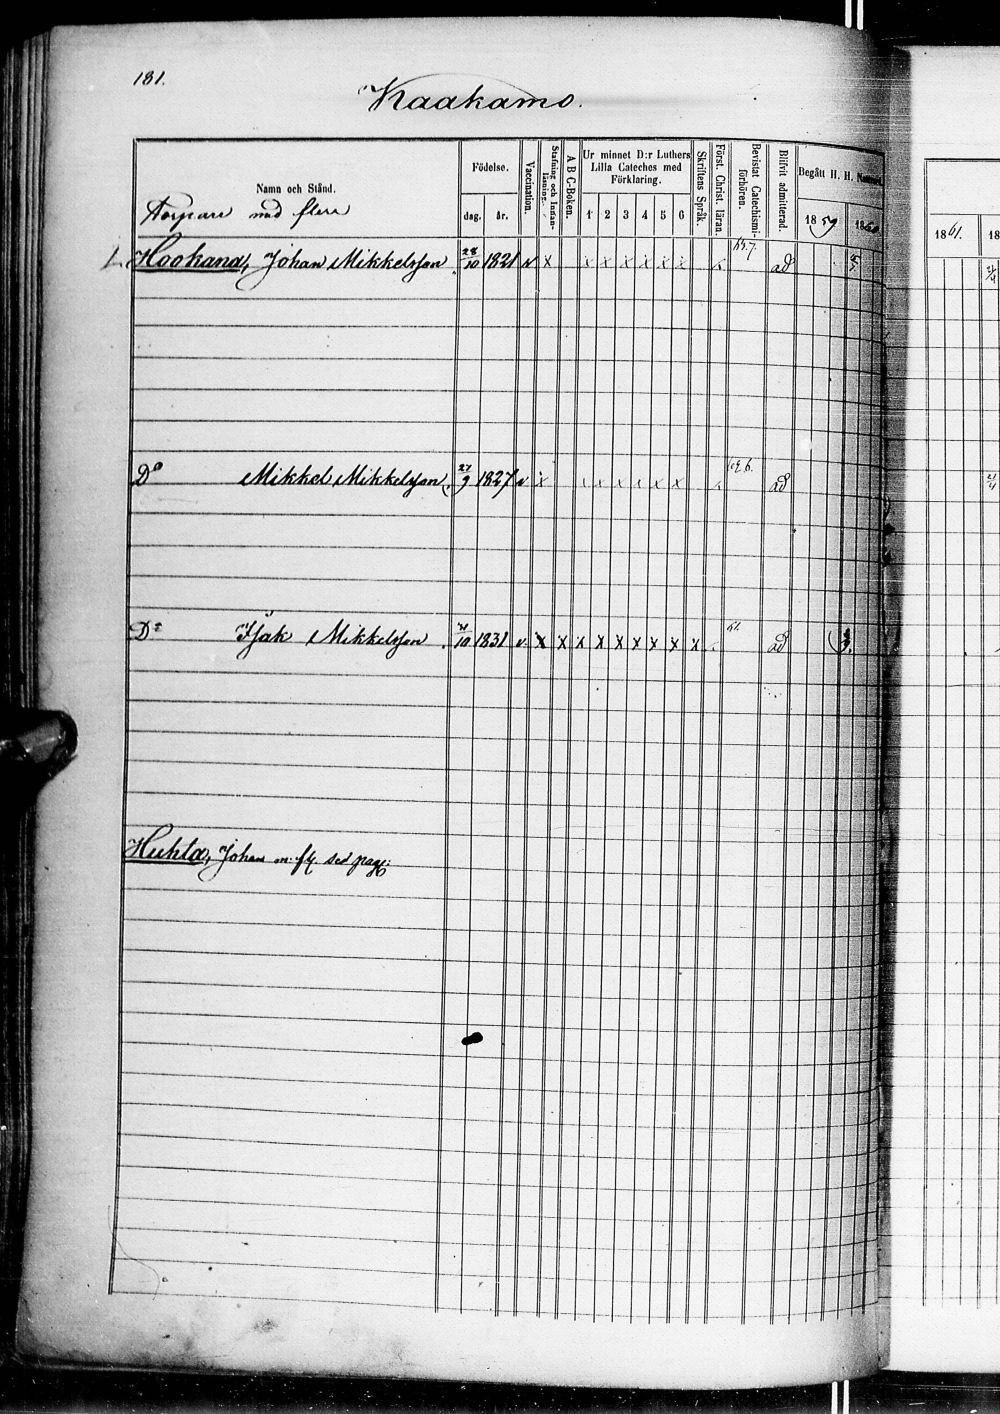 181.
Kaakamo.
Namn och Stånd.
Torpare med flera
Födelse.
dag. år.
Vaccination.
Stafning och Innan-läsning.
A B C-Boken.
Ur minnet D:r Luthers Lilla Cateches med Förklaring.
1 2 3 4 5 6
Skriftens Språk.
Först. Christ. läran.
Bevistat Catechismi-förhören.
Blifvit admitterad.
Begått H. H. Nattvard.
1859 1860
1861. 18
Hookana, Johan Mikkelsson 28/10 1821 v x x x x x x x 65.7. ad
Do Mikkel Mikkelsson 27/9 1827 v x x x x x x x ad 21/4
Do Isak Mikkelsson 21/10 1831 v. x x x x x x x x x 61. ad
Huhta, Johan m. fl. sed pag: